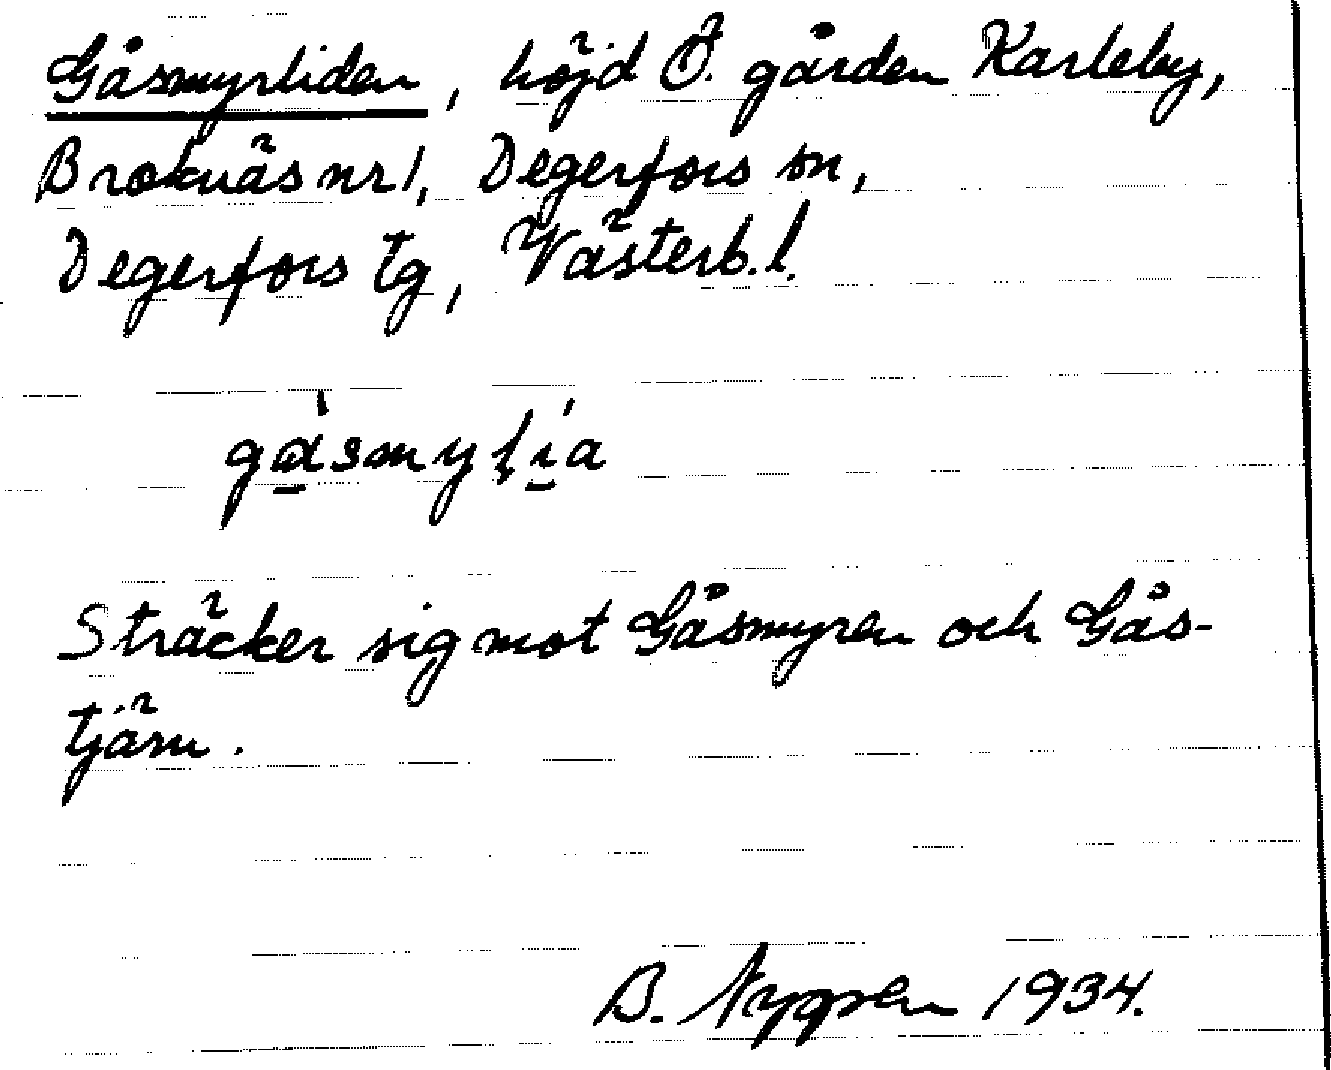 Gåsmyrliden, höjd Ö. gården Karleby,
Broknäs nr 1, Degerfors sn,
Degerfors tg, Västerb. l.
Sträcker sig mot Gåsmyren och Gås-
tjärn.
B. Nygren 1934.